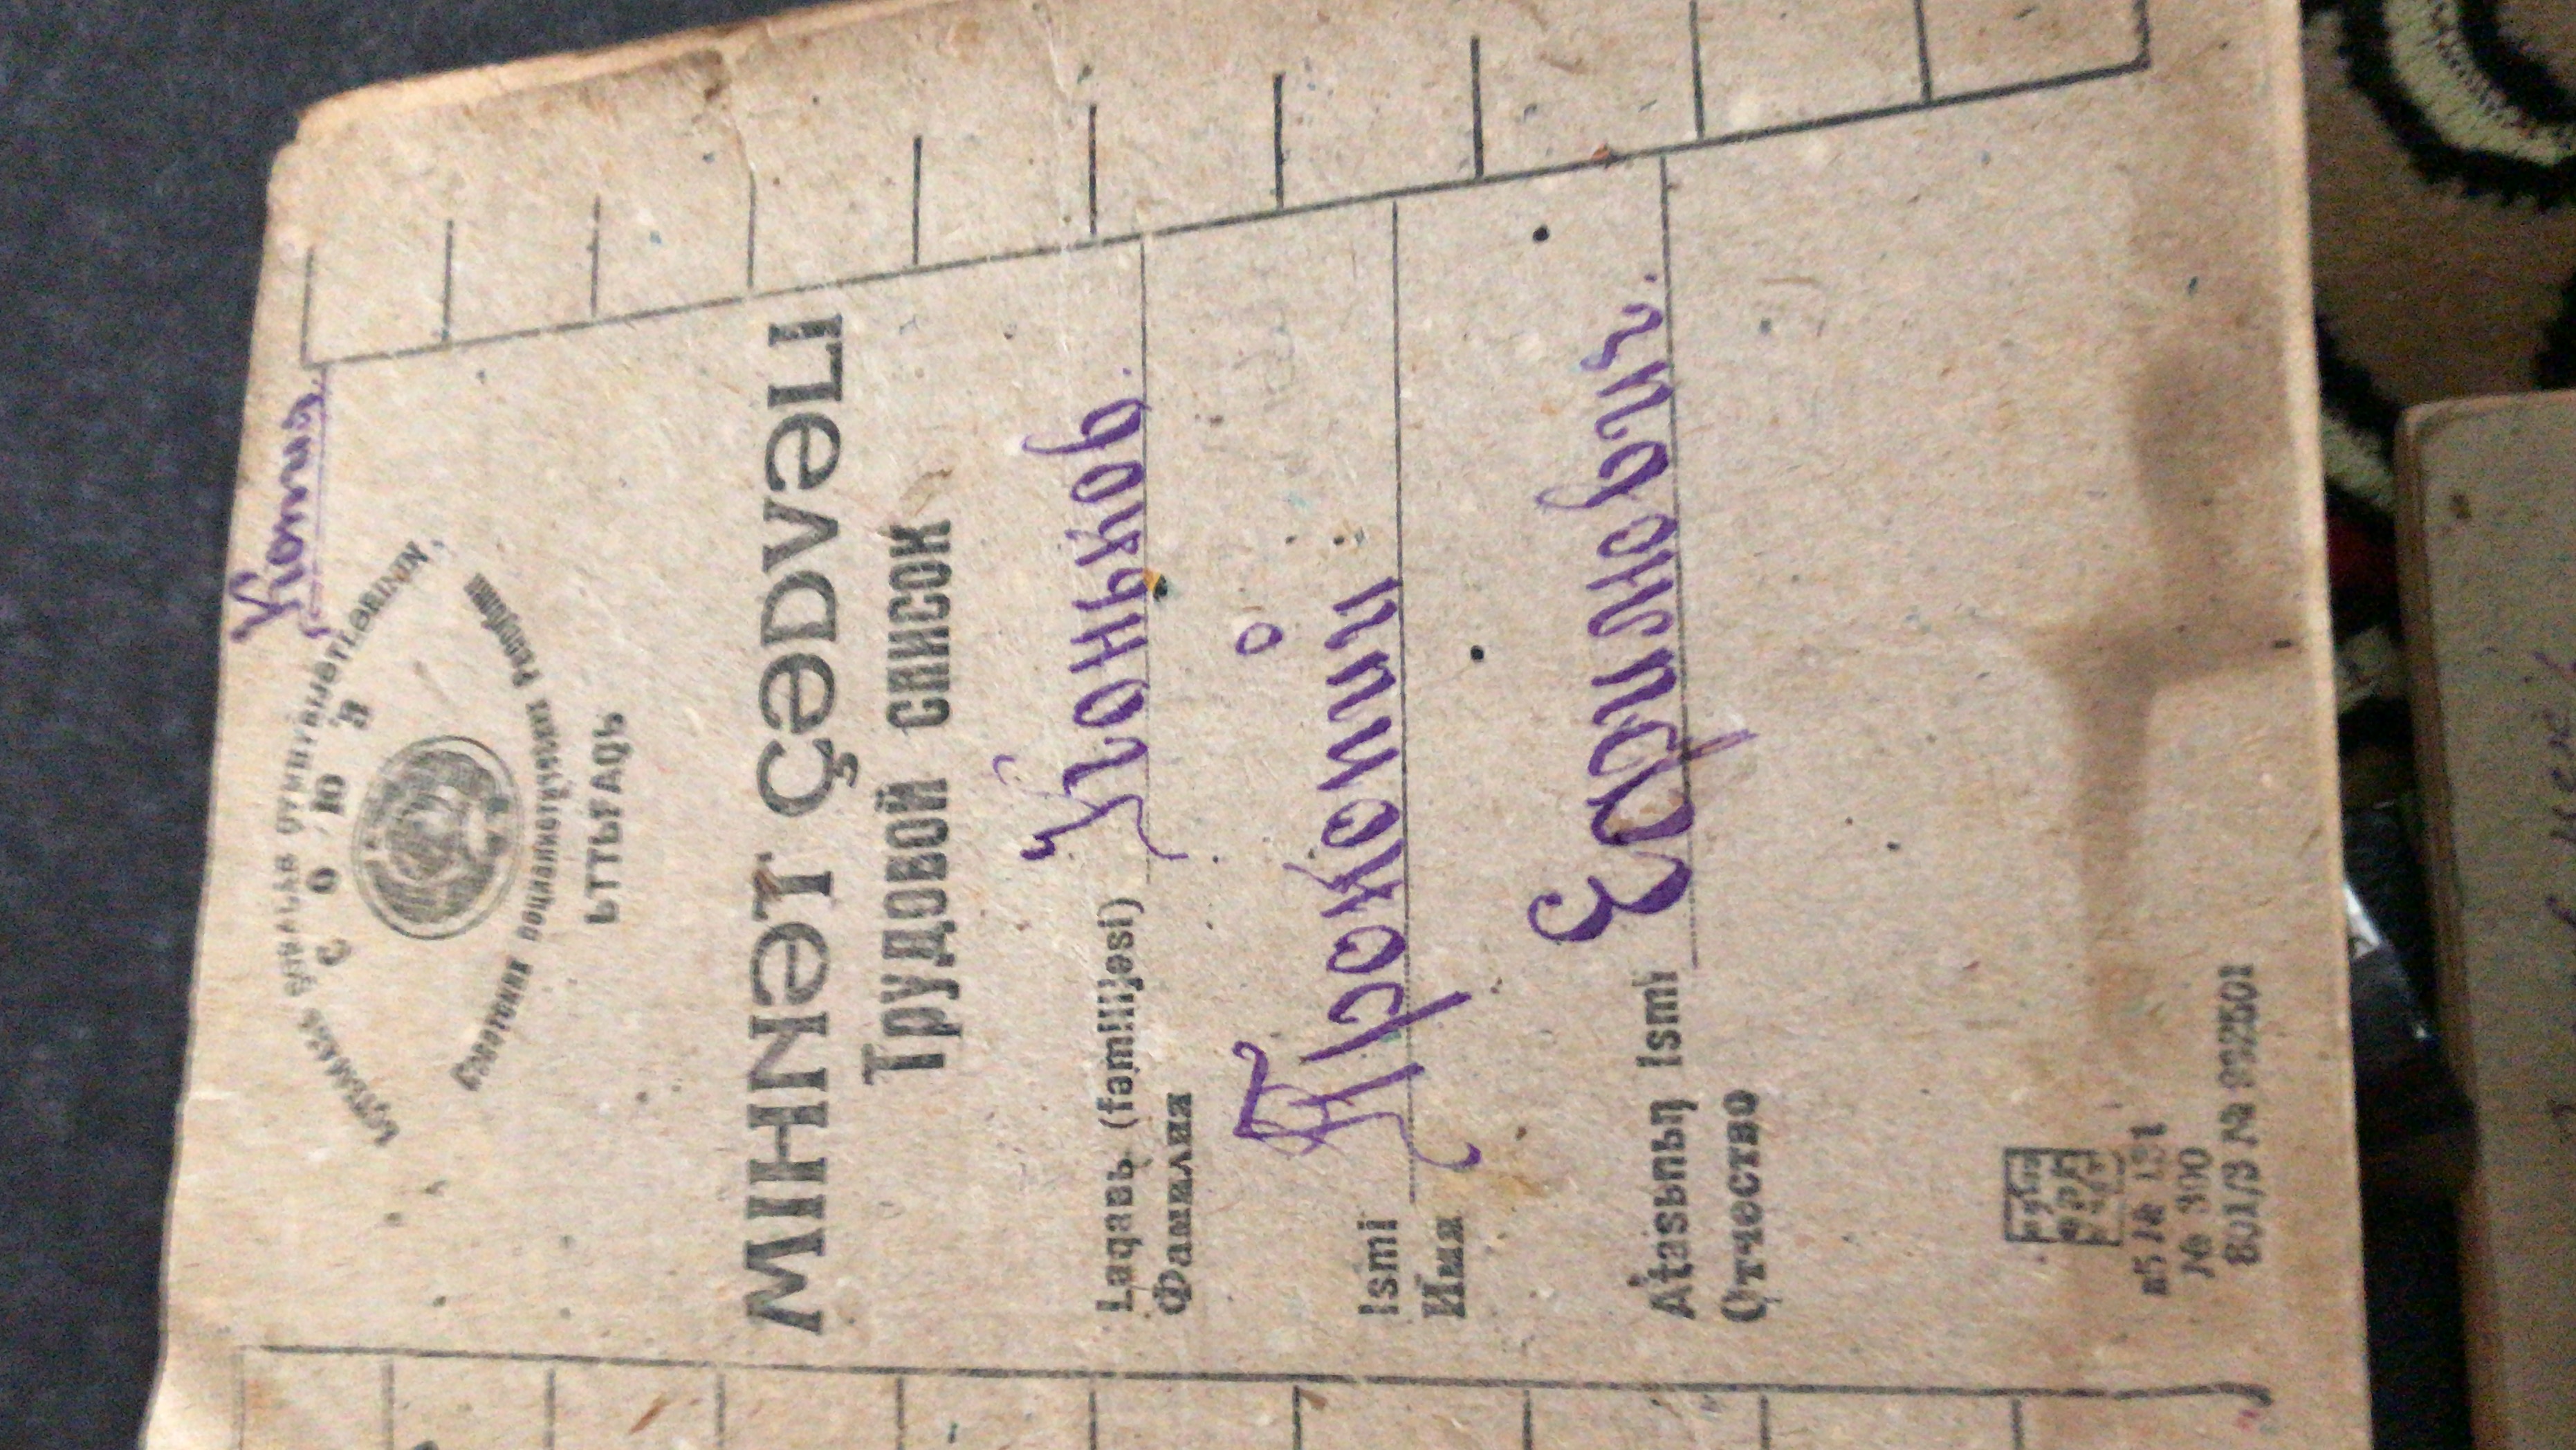 Копия
ЬÇТЬМАЬЬ ŞURALAR ÇYMHYRIJƏTLƏRININ,
СОЮЗ
Советских социалистических Республик
ЬТТЬFAQЬ
MIHNƏT ÇƏDVƏLI
Трудовой список
Laqaвь (familijəsi) Коньков.
Фамилия
Ismi Прокопий
Имя
Atasьnьŋ Ismi Ефимович.
Отчество
№ 300
801/3 №